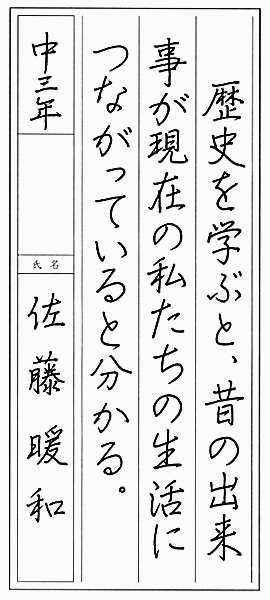 歴史を学ぶと、昔の出来
事が現在の私たちの生活に
つながっていると分かる。
中三年
氏名
佐藤暖和